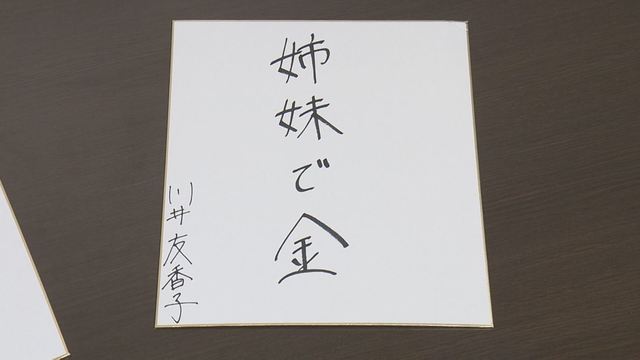 姉妹で金
川井友香子